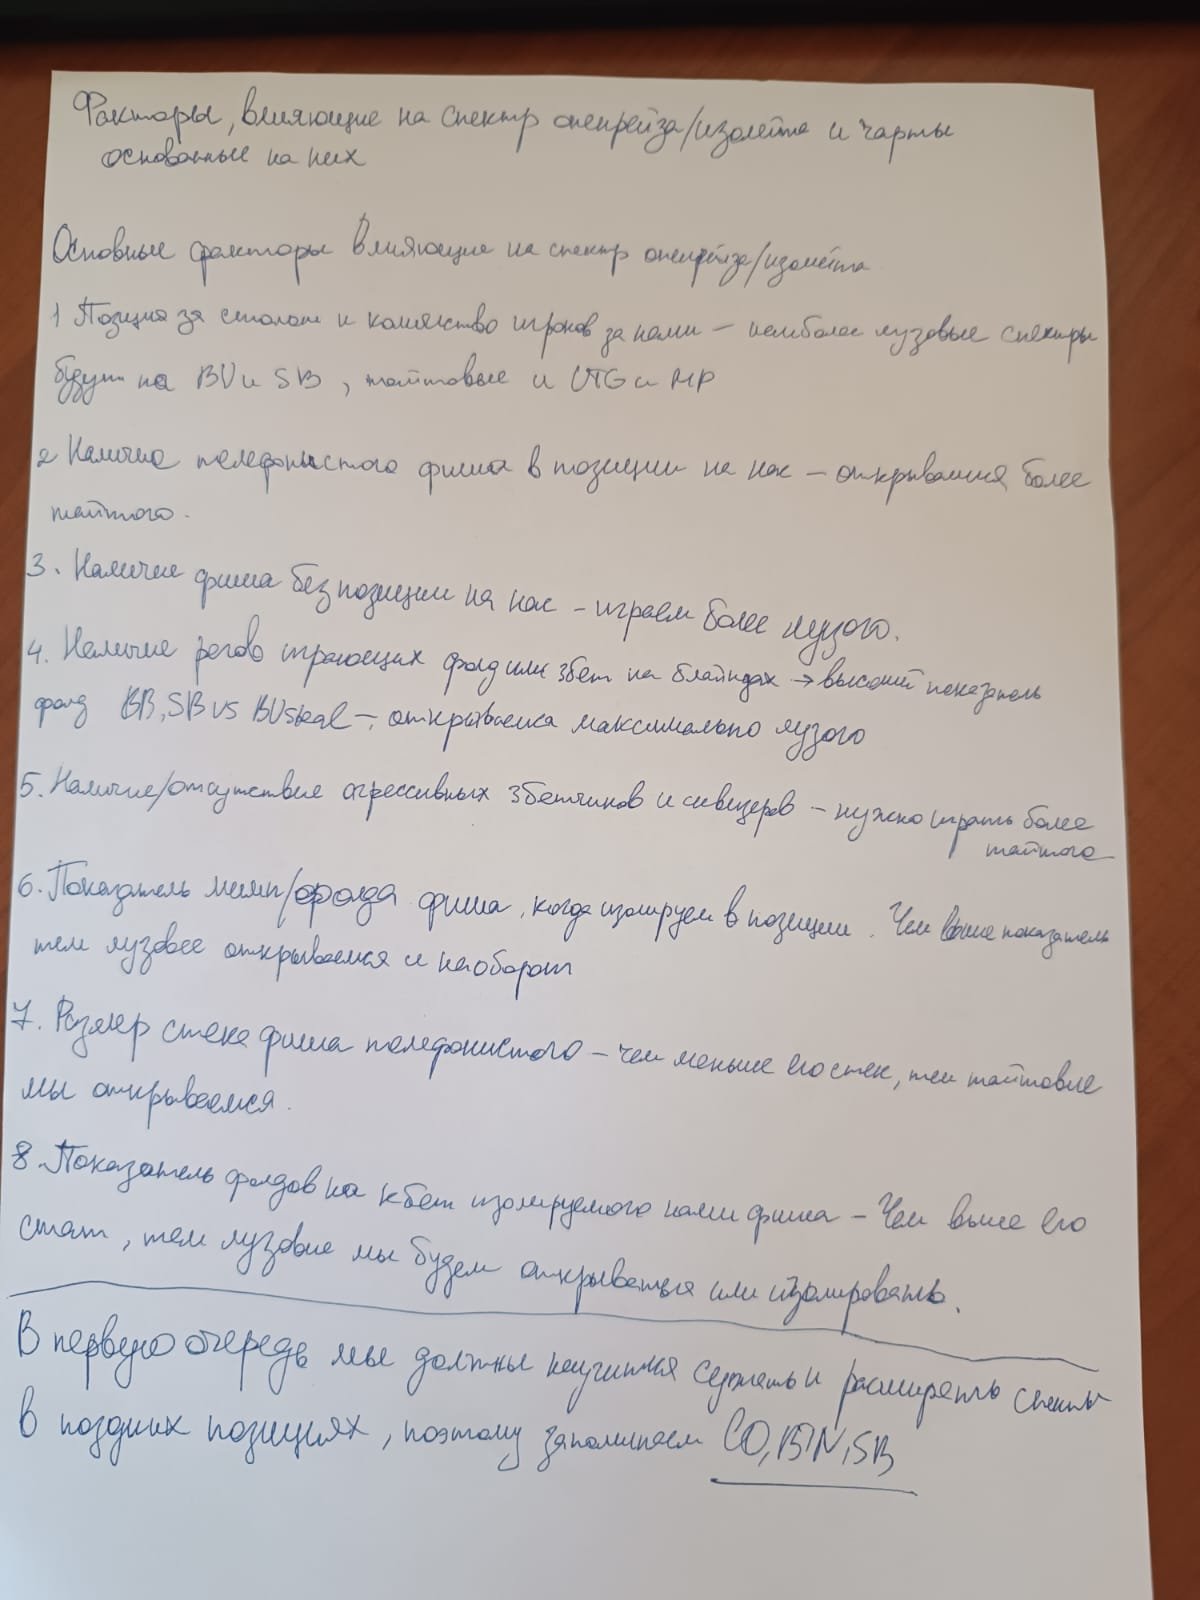 Факторы, влияющие на спектр опенрейза/изолейта и чарты
основанные на них
Основные факторы влияющие на спектр опенрейза/изолейта
1 Позиция за столом и количество игроков за нами – наиболее лузовые спектры
будут на BU и SB, тайтовые и UTG и MP
2 Наличие телефонистого фиша в позиции на нас – открываемся более
тайтого.
3. Наличие фиша без позиции на нас – играем более лузого.
4. Наличие регов играющих фолд или 3бет на блайндах → высокий показатель
фолд BB, SB vs BU steal – открываемся максимально лузого
5. Наличие/отсутствие агрессивных 3бетчиков и сквизеров – нужно играть более
тайтого
6. Показатель лимп/фолда фиша, когда изолируем в позиции. Чем выше показатель
тем лузовее открываемся и наоборот
7. Размер стека фиша телефонистого – чем меньше его стек, тем тайтовие
мы открываемся.
8. Показатель фолдов на кбет изолируемого нами фиша – Чем выше его
стат, тем лузовие мы будем открываться или изолировать.
В первую очередь мы должны научится сужать и расширять спектры
в поздних позициях, поэтому запоминаем CO, BTN, SB